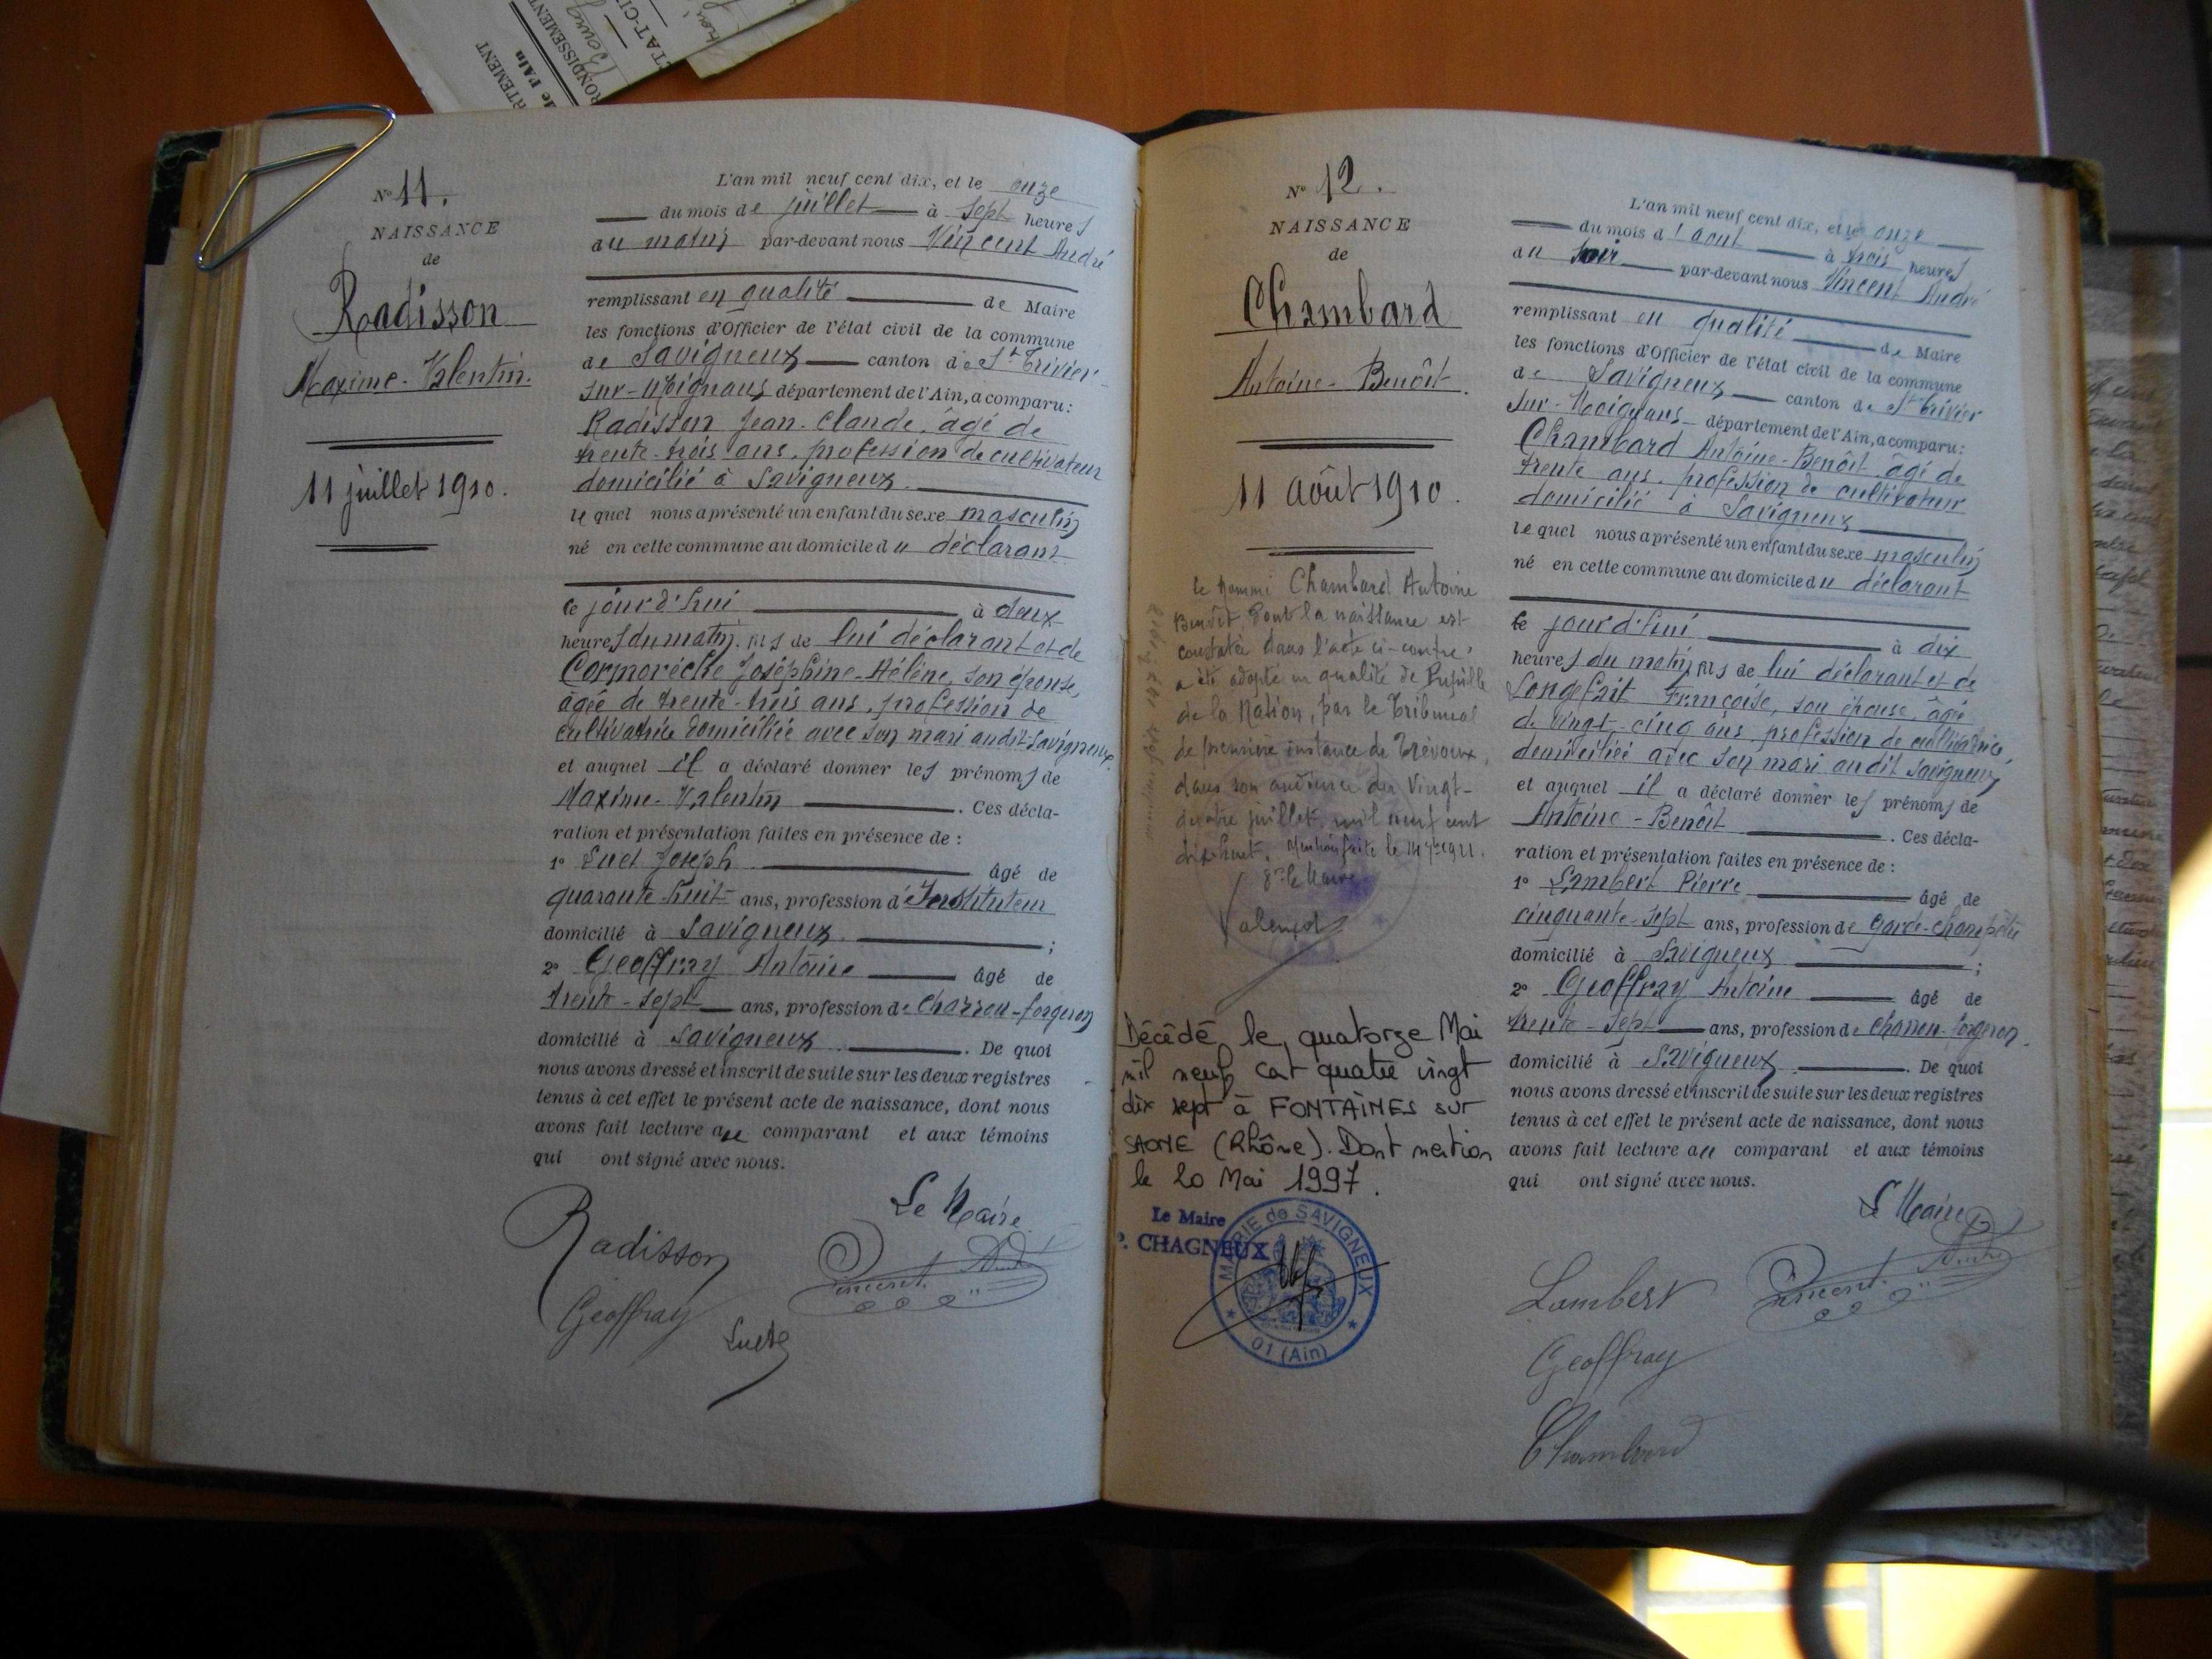 N° 11.
NAISSANCE
de
Radisson
Maxime-Valentin.
11 juillet 1910.
L'an mil neuf cent dix, et le onze
du mois de juillet à sept heures
du matin par-devant nous Vincent André
remplissant en qualité de Maire
les fonctions d'Officier de l'état civil de la commune
de Savigneux canton de St Trivier-
sur-Moignans département de l'Ain, a comparu :
Radisson Jean-Claude, âgé de
trente-trois ans, profession de cultivateur
domicilié à Savigneux.
lequel nous a présenté un enfant du sexe masculin
né en cette commune au domicile du déclarant
ce jourd'hui à deux
heures du matin, fils de lui déclarant et de
Cormorèche Joséphine-Hélène, son épouse,
âgée de trente-trois ans, profession de
cultivatrice domiciliée avec son mari audit Savigneux,
et auquel il a déclaré donner les prénoms de
Maxime-Valentin. Ces décla-
ration et présentation faites en présence de :
1° Suet Joseph âgé de
quarante-huit ans, profession d'Instituteur
domicilié à Savigneux ;
2° Geoffray Antoine âgé de
trente-sept ans, profession de charron-forgeron
domicilié à Savigneux. De quoi
nous avons dressé et inscrit de suite sur les deux registres
tenus à cet effet le présent acte de naissance, dont nous
avons fait lecture au comparant et aux témoins
qui ont signé avec nous.
Le Maire
Radisson
Vincent André
Geoffray
N° 12.
NAISSANCE
de
Chambard
Antoine-Benoît.
11 août 1910.
le nommé Chambard Antoine
Benoît, dont la naissance est
constatée dans l'acte ci-contre,
a été adopté en qualité de Pupille
de la Nation, par le Tribunal
de première instance de Trévoux,
dans son audience du Vingt-
quatre juillet mil neuf cent
dix-huit. Mention faite le 14 1921.
le Maire
Décédé le quatorze Mai
mil neuf cent quatre vingt
dix sept à FONTAINES sur
SAONE (Rhône). Dont mention
le 20 Mai 1997.
Le Maire
P. CHAGNEUX
MAIRIE de SAVIGNEUX
01 (Ain)
L'an mil neuf cent dix, et le onze
du mois d'août à trois heures
du soir par-devant nous Vincent André
remplissant en qualité de Maire
les fonctions d'Officier de l'état civil de la commune
de Savigneux canton de St Trivier
sur-Moignans département de l'Ain, a comparu :
Chambard Antoine-Benoît âgé de
trente ans, profession de cultivateur
domicilié à Savigneux
lequel nous a présenté un enfant du sexe masculin
né en cette commune au domicile du déclarant
ce jourd'hui à dix
heures du matin, fils de lui déclarant et de
Longefait Françoise, son épouse, âgée
de vingt-cinq ans, profession de cultivatrice,
domiciliée avec son mari audit Savigneux
et auquel il a déclaré donner les prénoms de
Antoine-Benoît. Ces décla-
ration et présentation faites en présence de :
1° Lambert Pierre âgé de
cinquante-sept ans, profession de garde-champêtre
domicilié à Savigneux ;
2° Geoffray Antoine âgé de
trente-sept ans, profession de charron-forgeron.
domicilié à Savigneux. De quoi
nous avons dressé et inscrit de suite sur les deux registres
tenus à cet effet le présent acte de naissance, dont nous
avons fait lecture au comparant et aux témoins
qui ont signé avec nous.
Le Maire
Lambert
Vincent André
Geoffray
Chambard